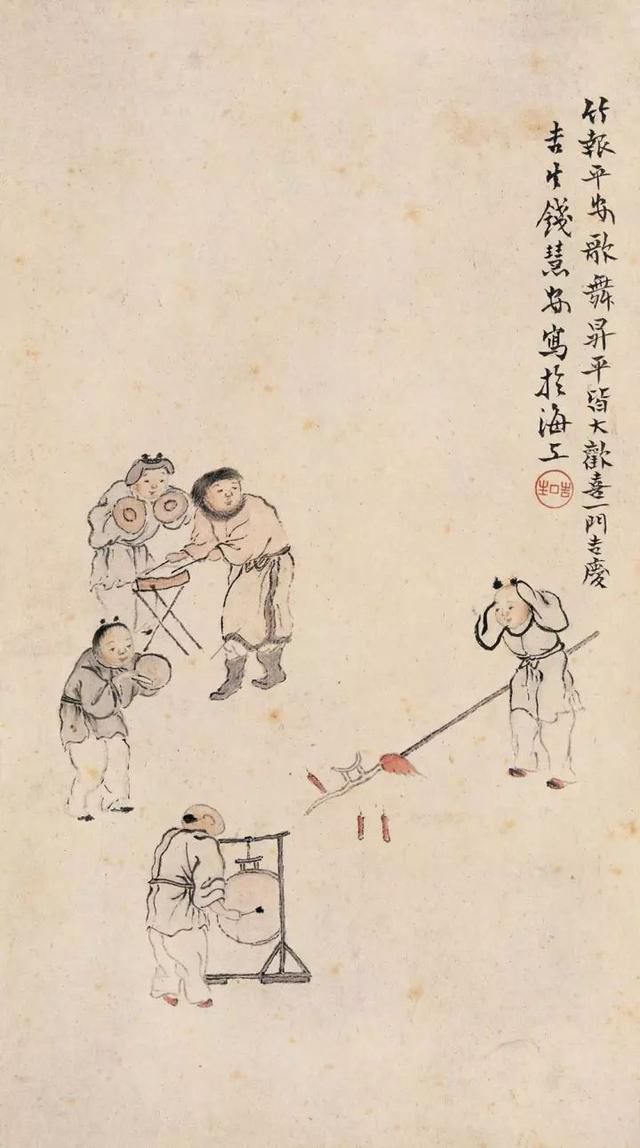 竹報平安歌舞昇平皆大歡喜一門吉慶
吉生錢慧安寫於海上
吉生